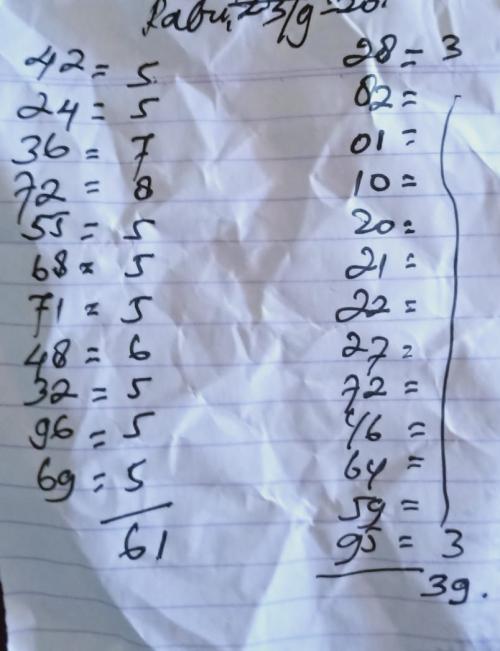 Rabu,
42 = 5
24 = 5
36 = 7
72 = 8
55 = 5
68 = 5
71 = 5
48 = 6
32 = 5
96 = 5
69 = 5
61
28 = 3
82 =
01 =
10 =
20 =
21 =
22 =
27 =
72 =
46 =
64 =
59 =
95 = 3
39.